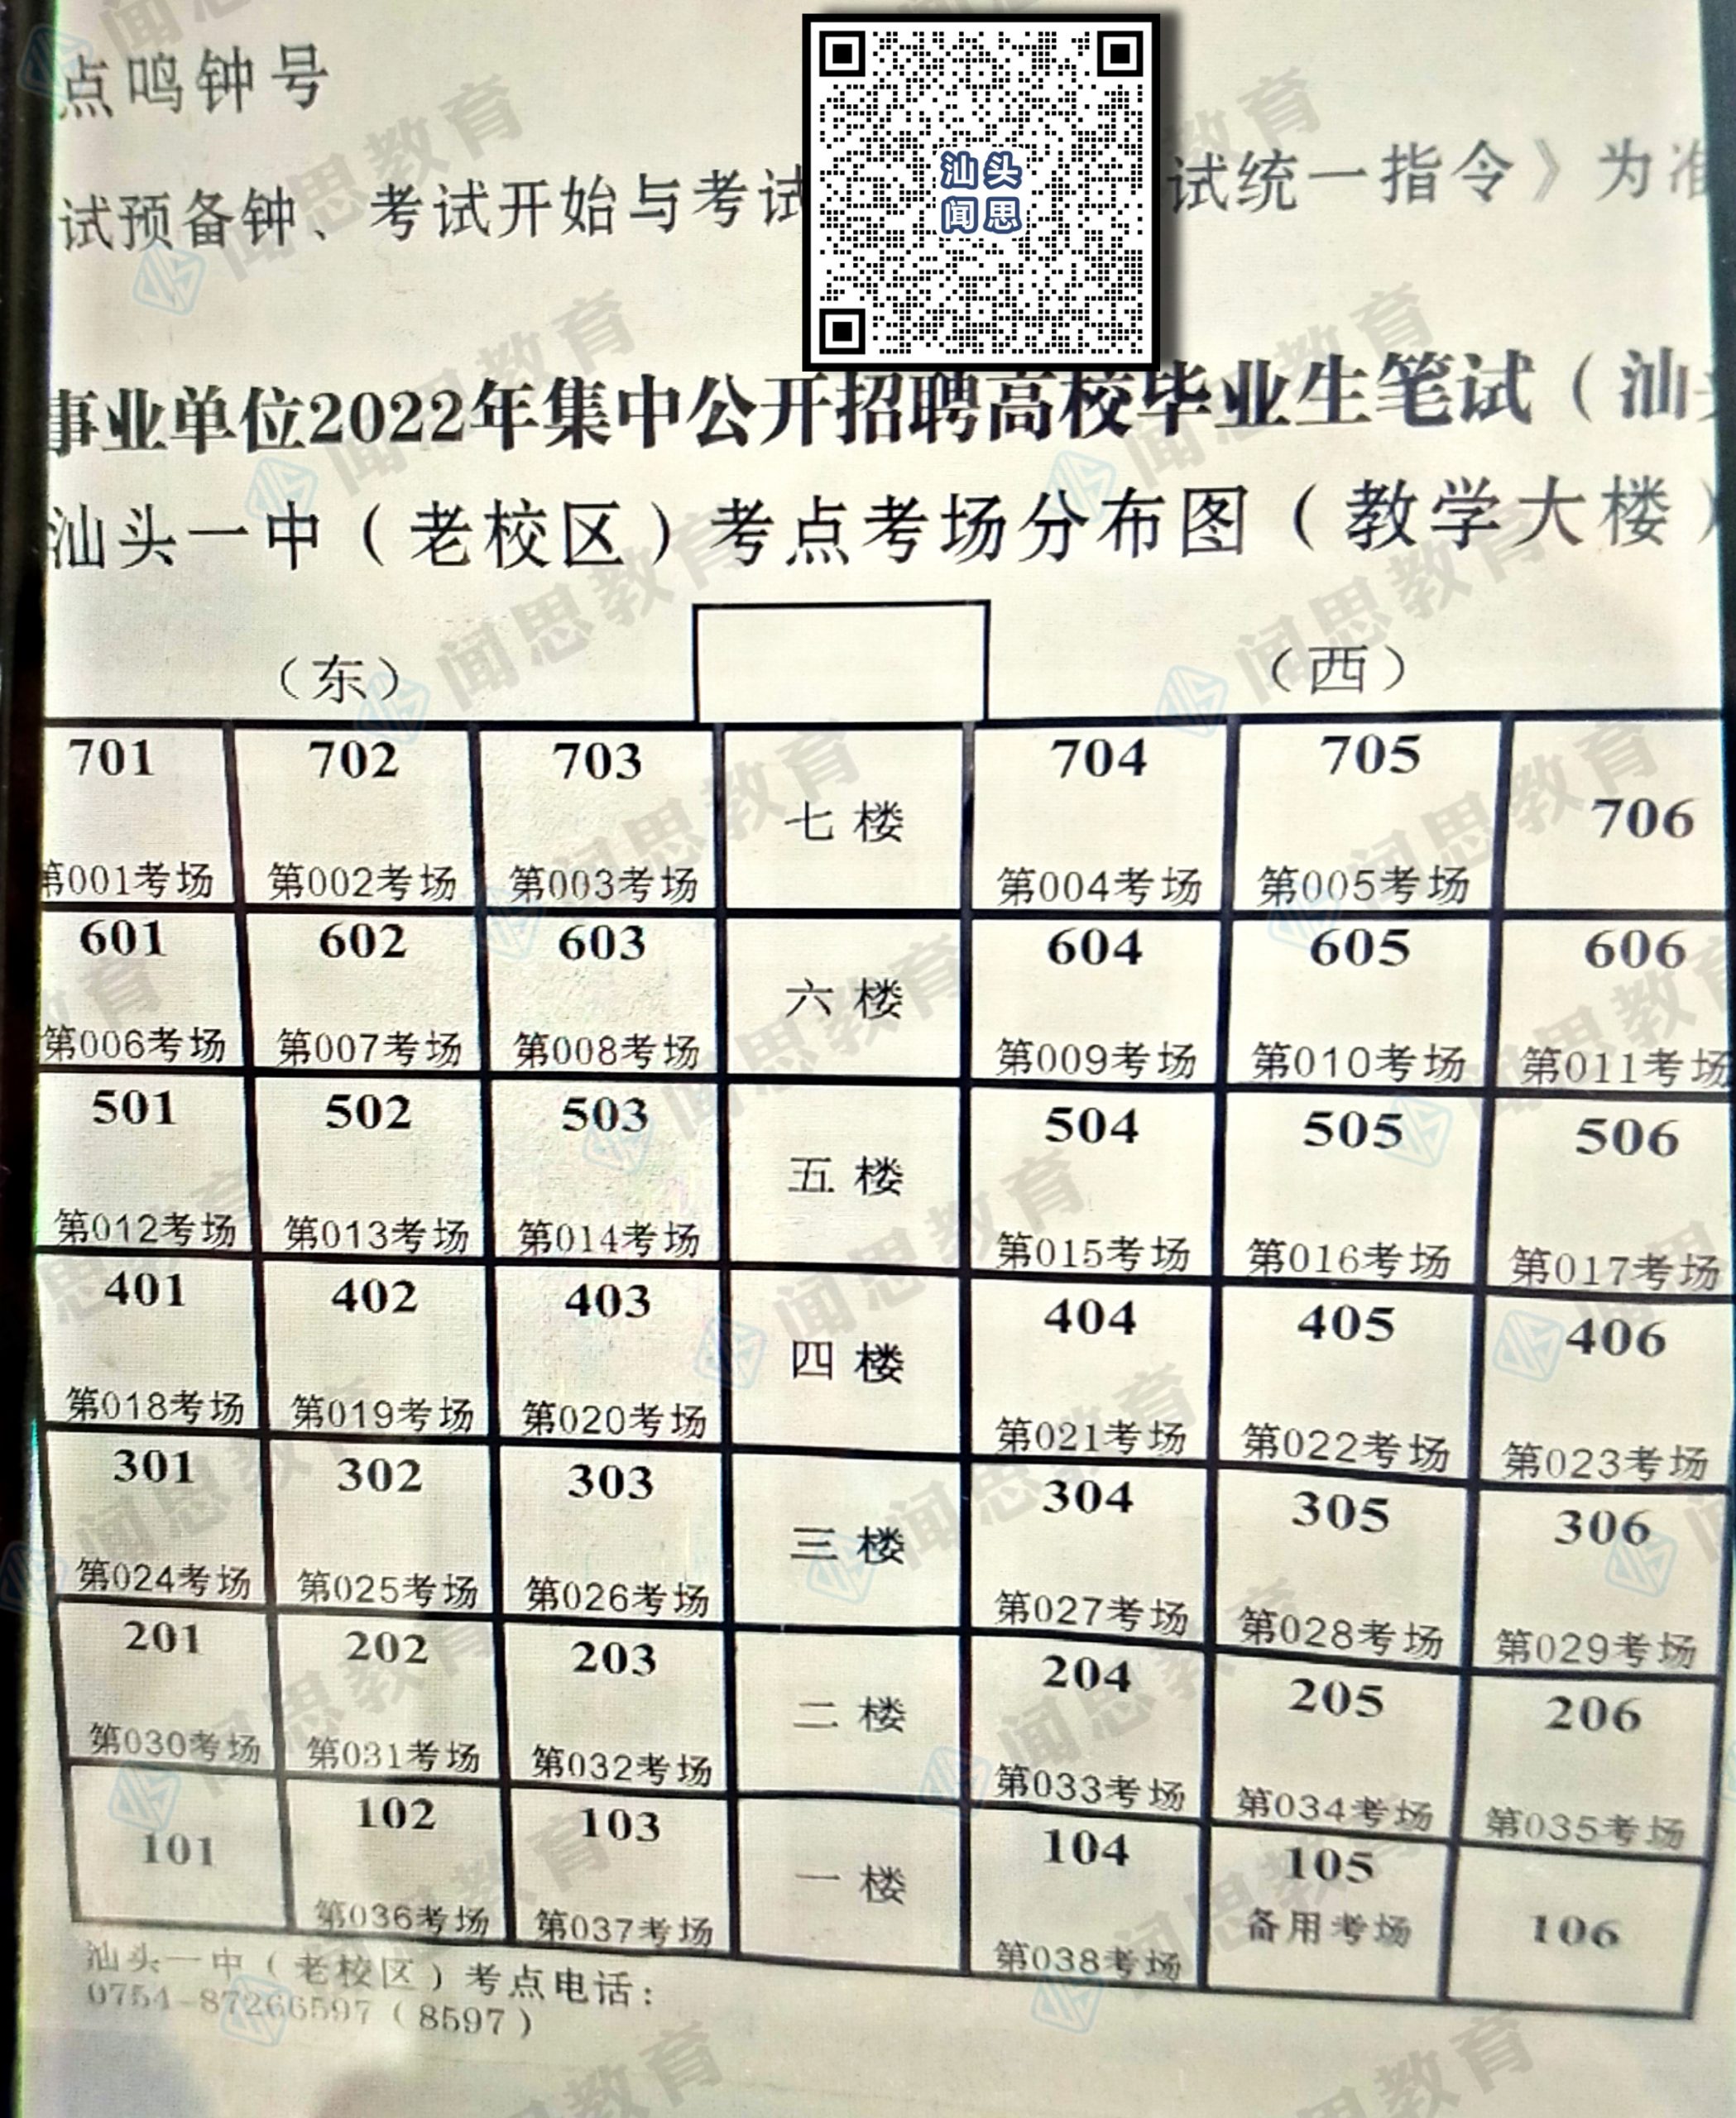 点鸣钟号
试预备钟、考试开始与考试
试统一指令》为准
汕头
闻思
事业单位2022年集中公开招聘高校毕业生笔试（汕
汕头一中（老校区）考点考场分布图（教学大楼）
（东）
（西）
701 702 703 704 705
七楼 706
第001考场 第002考场 第003考场 第004考场 第005考场
601 602 603 604 605 606
六楼
第006考场 第007考场 第008考场 第009考场 第010考场 第011考场
501 502 503 504 505 506
五楼
第012考场 第013考场 第014考场 第015考场 第016考场 第017考场
401 402 403 404 405 406
四楼
第018考场 第019考场 第020考场 第021考场 第022考场 第023考场
301 302 303 304 305 306
三楼
第024考场 第025考场 第026考场 第027考场 第028考场 第029考场
201 202 203 204 205 206
二楼
第030考场 第031考场 第032考场 第033考场 第034考场 第035考场
102 103 104 105
101 一楼 106
第036考场 第037考场 第038考场 备用考场
汕头一中（老校区）考点电话：
0754-87266597（8597）
闻思教育